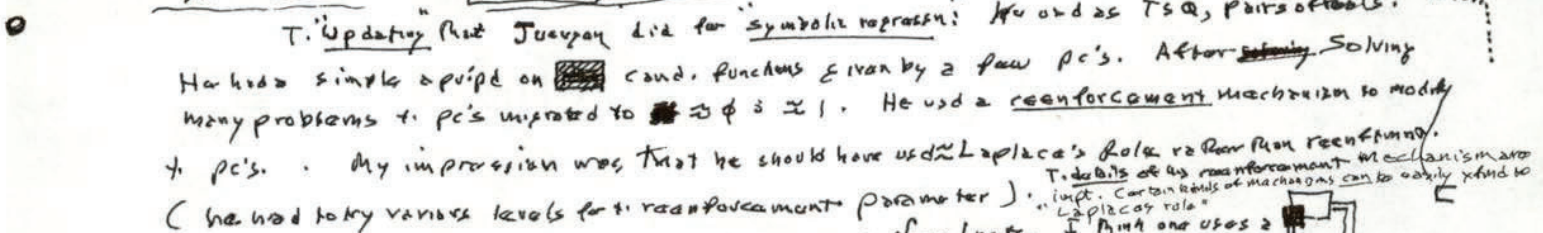 T. "Updating" that Juergan did for "symbolic regrassn: He usd as TSQ, pairs of
He had a simple apripd on cond. functions given by a few pc's. After Solving
many problems t. pc's migrated to ≈ φ & ≈ 1. He usd a reenforcement mechanism to modify
t. pc's. . My imprassion was that he should have usd ≈ Laplace's Rule rather than
(he had to try various levels for t. reenforcement parameter).
T. details of his reenforcement mechanism are
impt. Certain kinds of mechanisms can be easily xfmd to
"Laplaces rule"
I think one uses a